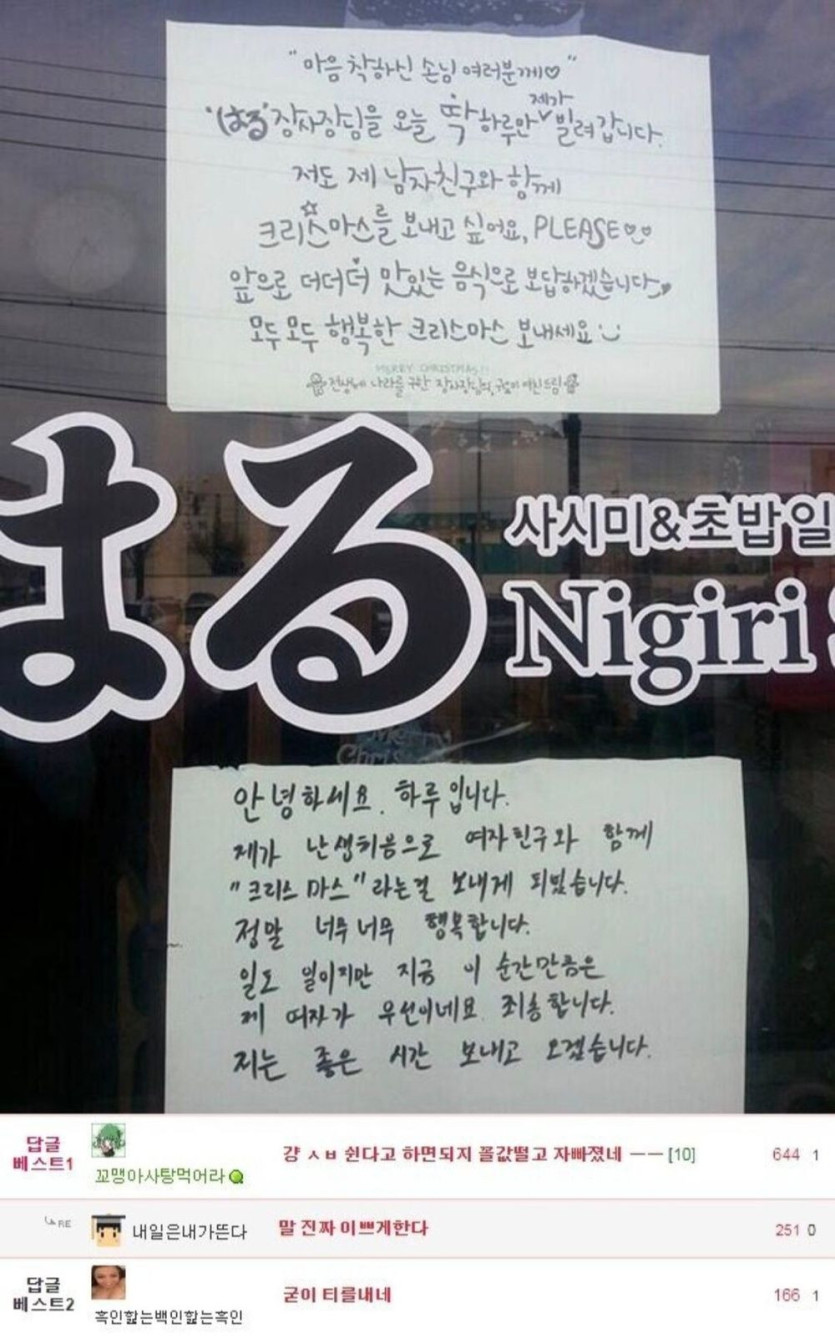 "마음 착하신 손님 여러분께♡"
'はる' 장사장님을 오늘 딱 하루만 제가 빌려갑니다.
저도 제 남자친구와 함께
크리스마스를 보내고 싶어요, PLEASE
앞으로 더더더 맛있는 음식으로 보답하겠습니다
모두모두 행복한 크리스마스 보내세요
MERRY CHRISTMAS!!
전생에 나라를 구한 장사장님의 여친드림
はる
사시미&초밥 일
Nigiri
Merry
Chris
안녕하세요. 하루입니다.
제가 난생처음으로 여자친구와 함께
"크리스마스"라는걸 보내게 되었습니다.
정말 너무너무 행복합니다.
일도 일이지만 지금 이 순간만큼은
제 여자가 우선이네요 죄송합니다.
저는 좋은 시간 보내고 오겠습니다.
답글
베스트1
꼬맹아사탕먹어라
걍 ㅅㅂ 쉰다고 하면되지 꼴값떨고 자빠졌네 ㅡㅡ [10]
644 1
RE
내일은내가뜬다
말 진짜 이쁘게한다
251 0
답글
베스트2
흑인핥는백인핥는흑인
굳이 티를내네
166 1